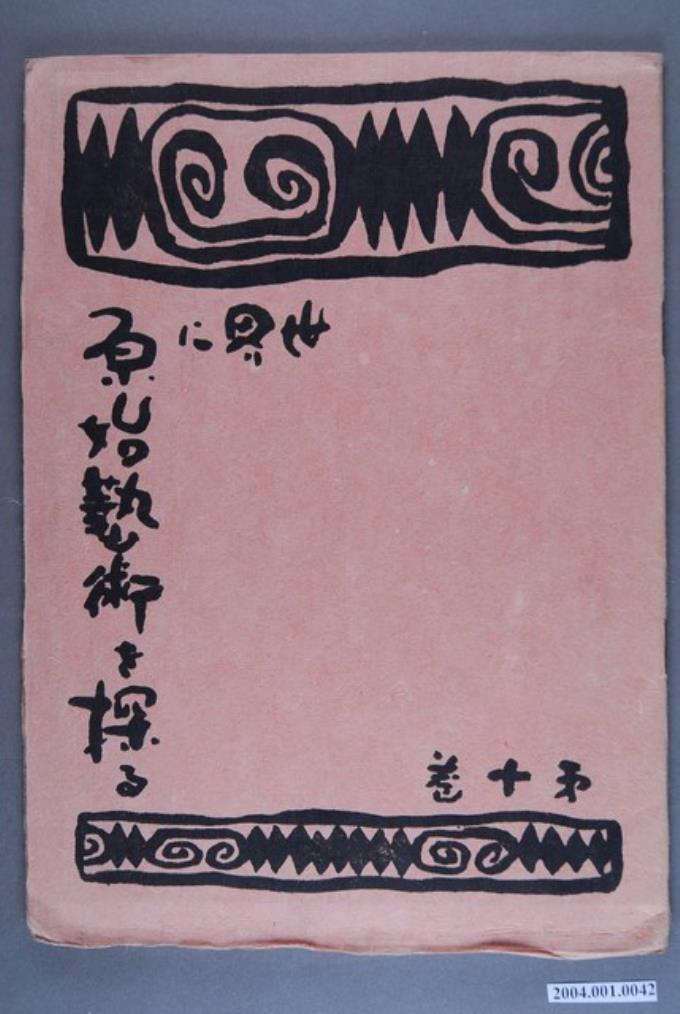 世界に
原始藝術を探る
第十巻
2004.001.0042